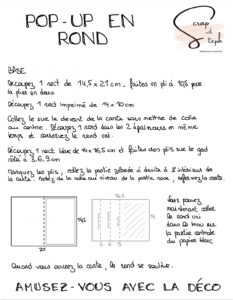 POP-UP EN
ROND
Scrap
et
Steph
BASE
Découpez 1 rect de 14,5 x 21 cm, faites en pli à 10,5 pour
la plier en deux.
Découpez 1 rect imprimé de 14 x 10 cm
Collez le sur le devant de la carte sans mettre de colle
au centre. Découpez 1 rond dans les 2 épaisseurs en même
temps et conservez le rond uni.
Découpez 1 rect blanc de 14 x 16,5 cm et faites des plis sur le grd
côté à 3.6.9 cm
Marquez les plis, collez la partie à droite à l'intérieur de
la carte. Mettez de la colle au niveau de la partie, refermez la carte.
14,5
21
16,5
3
3
3
14
Vous pouvez
maintenant coller
le rond uni
dans le trou sur
la partie centrale
du papier blanc
Quand vous ouvrez la carte, le rond se soulève.
AMUSEZ-VOUS AVEC LA DÉCO